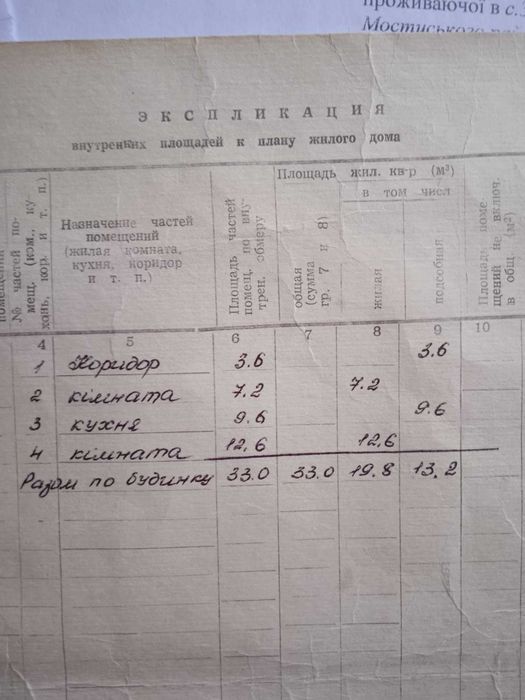 проживаючої в с.
Мостиського
ЭКСПЛИКАЦИЯ
внутренних площадей к плану жилого дома
помещения
№ частей по-
мещ. (ком., ку-
хонь, кор. и т. п.)
Назначение частей
помещений
(жилая комната,
кухня, коридор
и т. п.)
Площадь частей
помещ. по вну-
трен. обмеру
Площадь жил. кв-р (м²)
в том числ
общая
(сумма
гр. 7 и 8)
жилая
подсобная
Площадь поме
щений не включ.
в общ. (м²)
4 5 6 7 8 9 10
1 Коридор 3.6 3.6
2 кімната 7.2 7.2
3 кухня 9.6 9.6
4 кімната 12,6 12,6
Разом по будинку 33.0 33.0 19.8 13.2